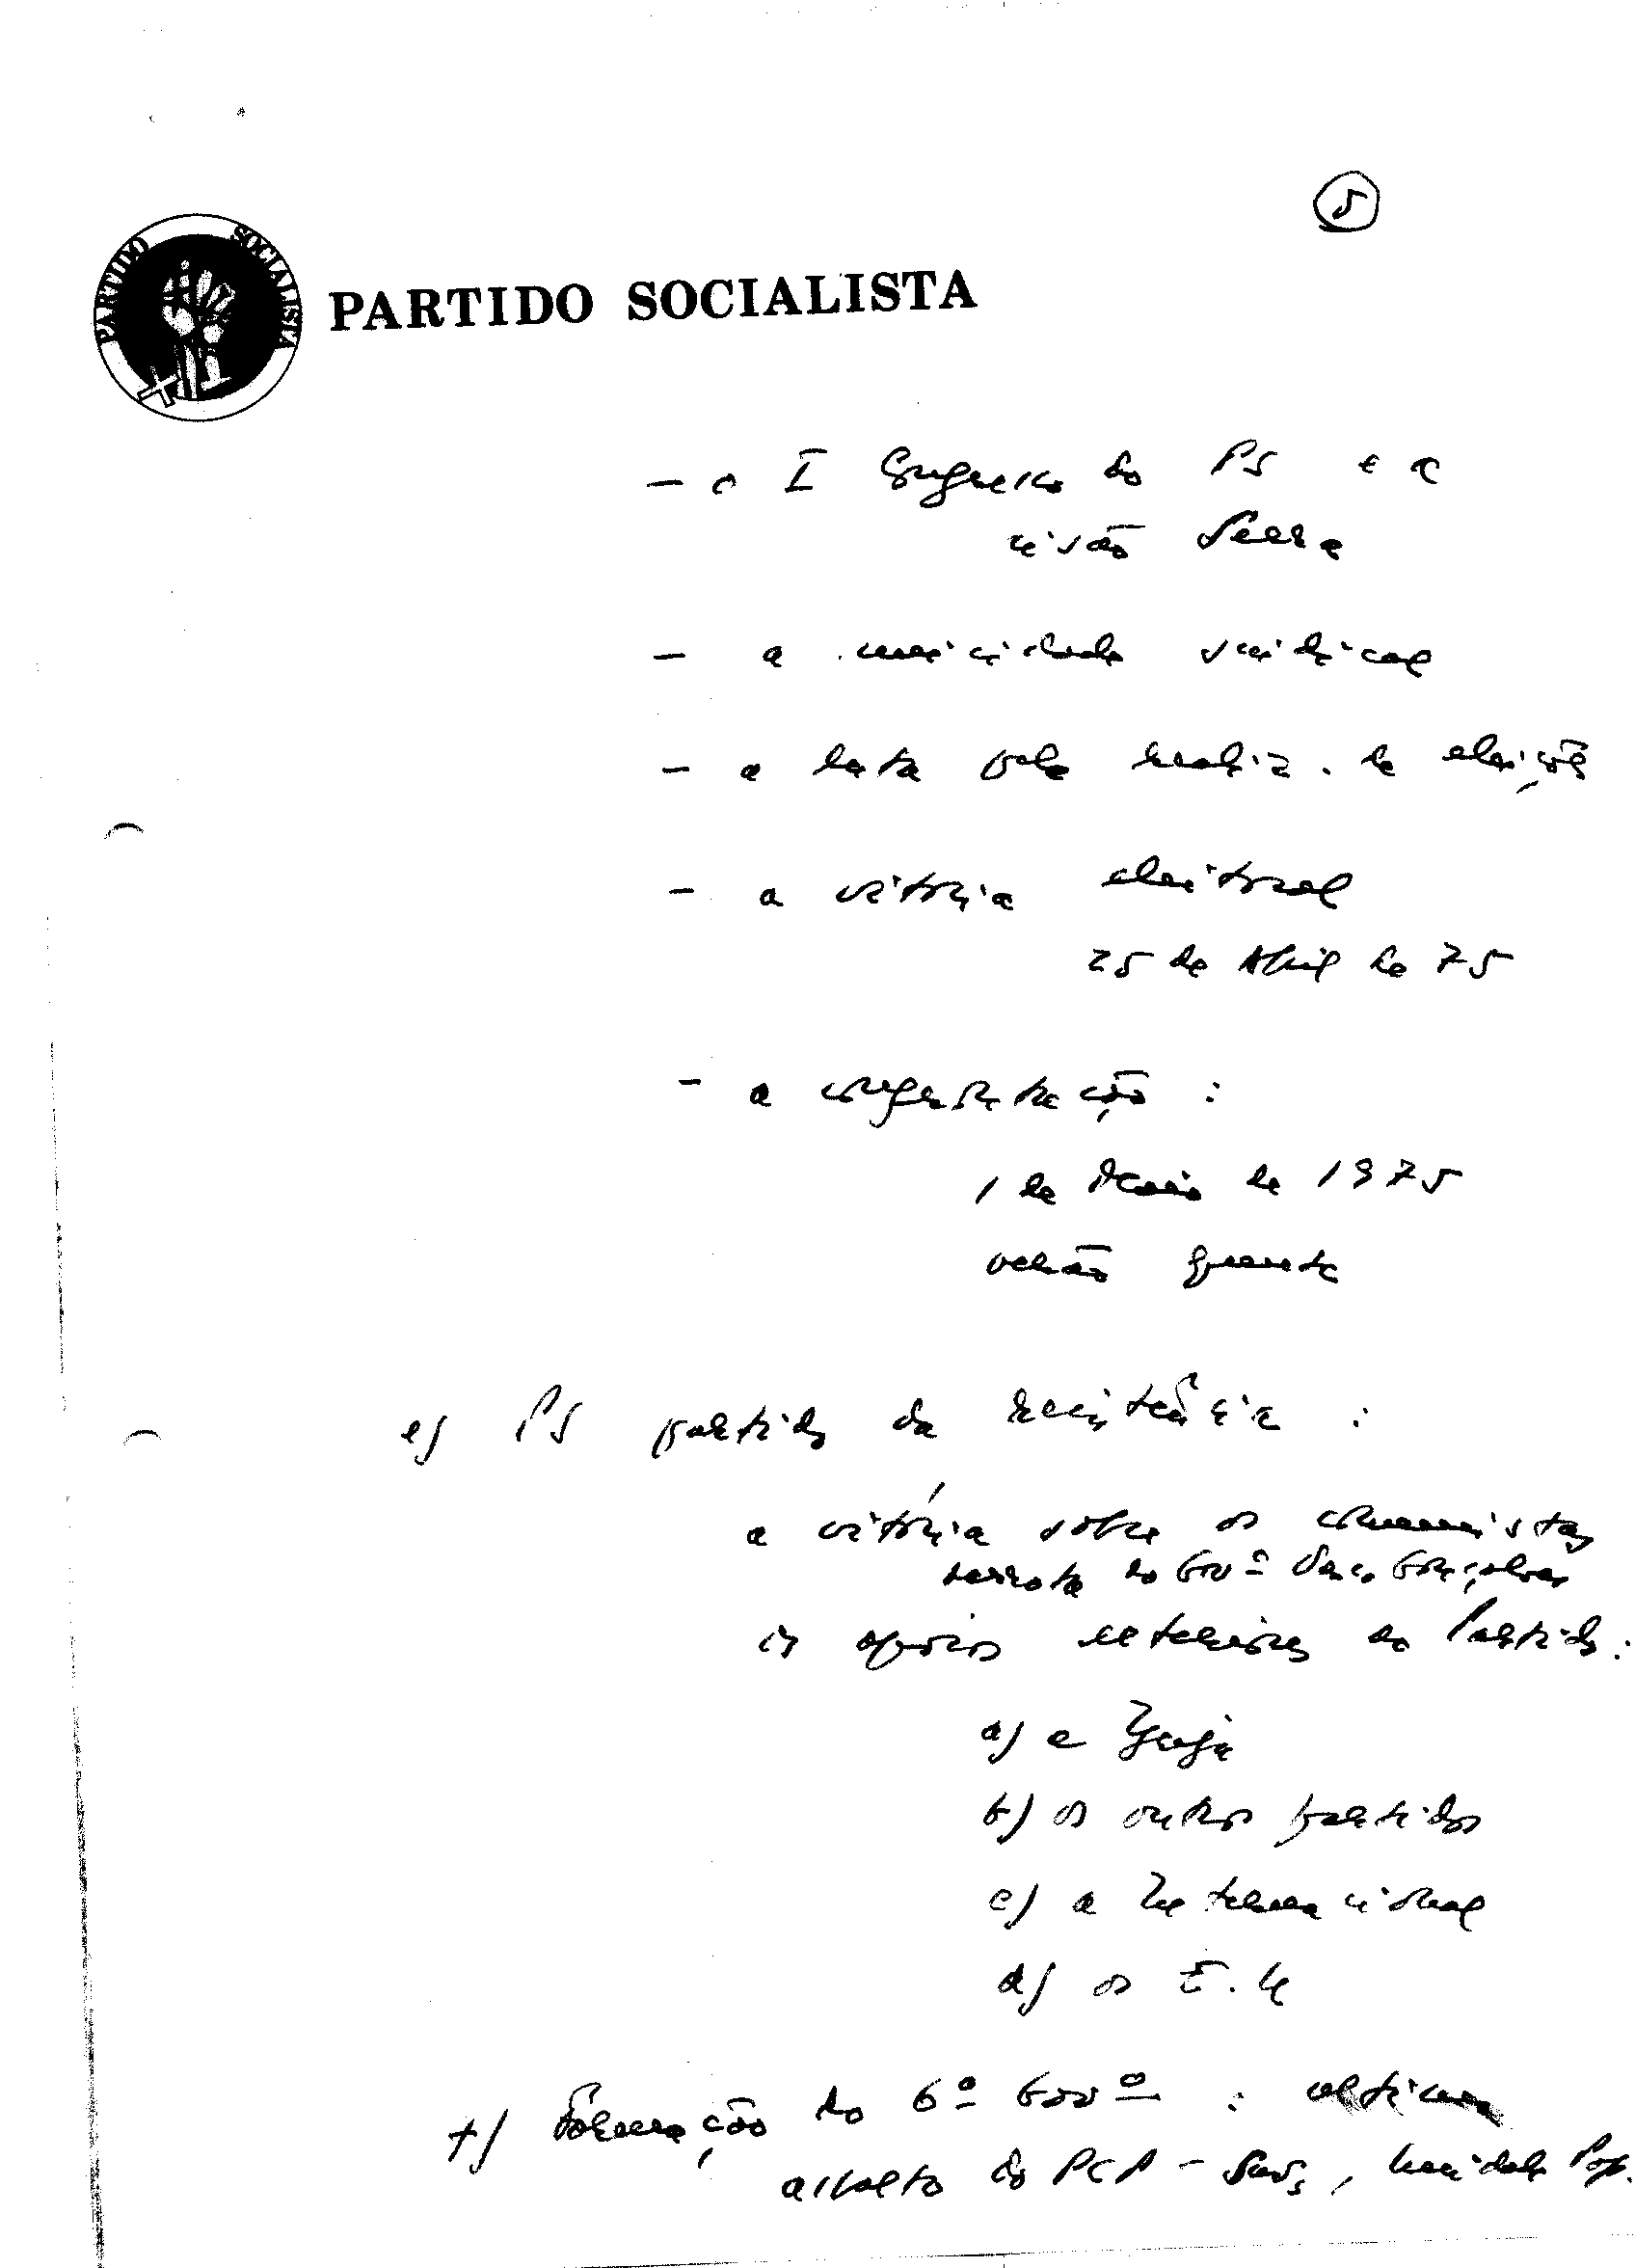 5
PARTIDO SOCIALISTA
PARTIDO SOCIALISTA
- o I Congresso do PS e a
cisão Serra
- a unicidade sindical
- a luta pela realiz. de eleições
- a vitória eleitoral
25 de Abril de 75
- a contestação :
1 de Maio de 1975
verão quente
e) PS partido da resistência :
a vitória sobre os comunistas
derrota do Govº Vasco Gonçalves
os apoios exteriores ao Partido :
a) a Igreja
b) os outros partidos
c) a Internacional
d) os E.U.
f) Formação do 6º Govº : último
assalto do PCP - SUVs, Unidade Pop.